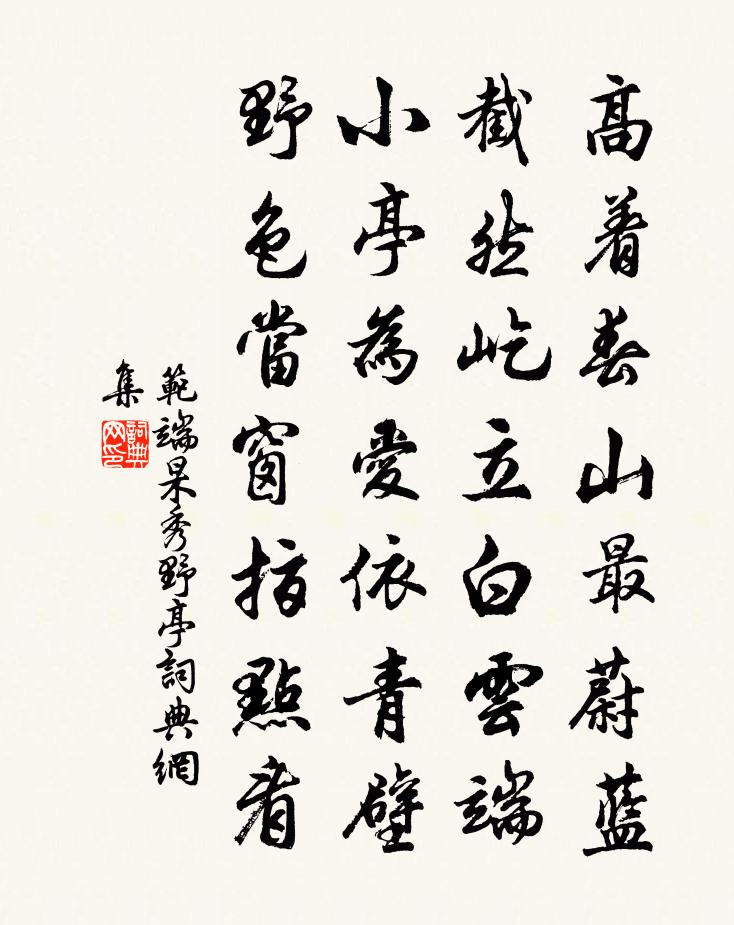 高着春山最蔚藍
截然屹立白雲端
小亭為愛依青壁
野色當窗指點看
範端杲秀野亭詞典網
集
詞典
网印